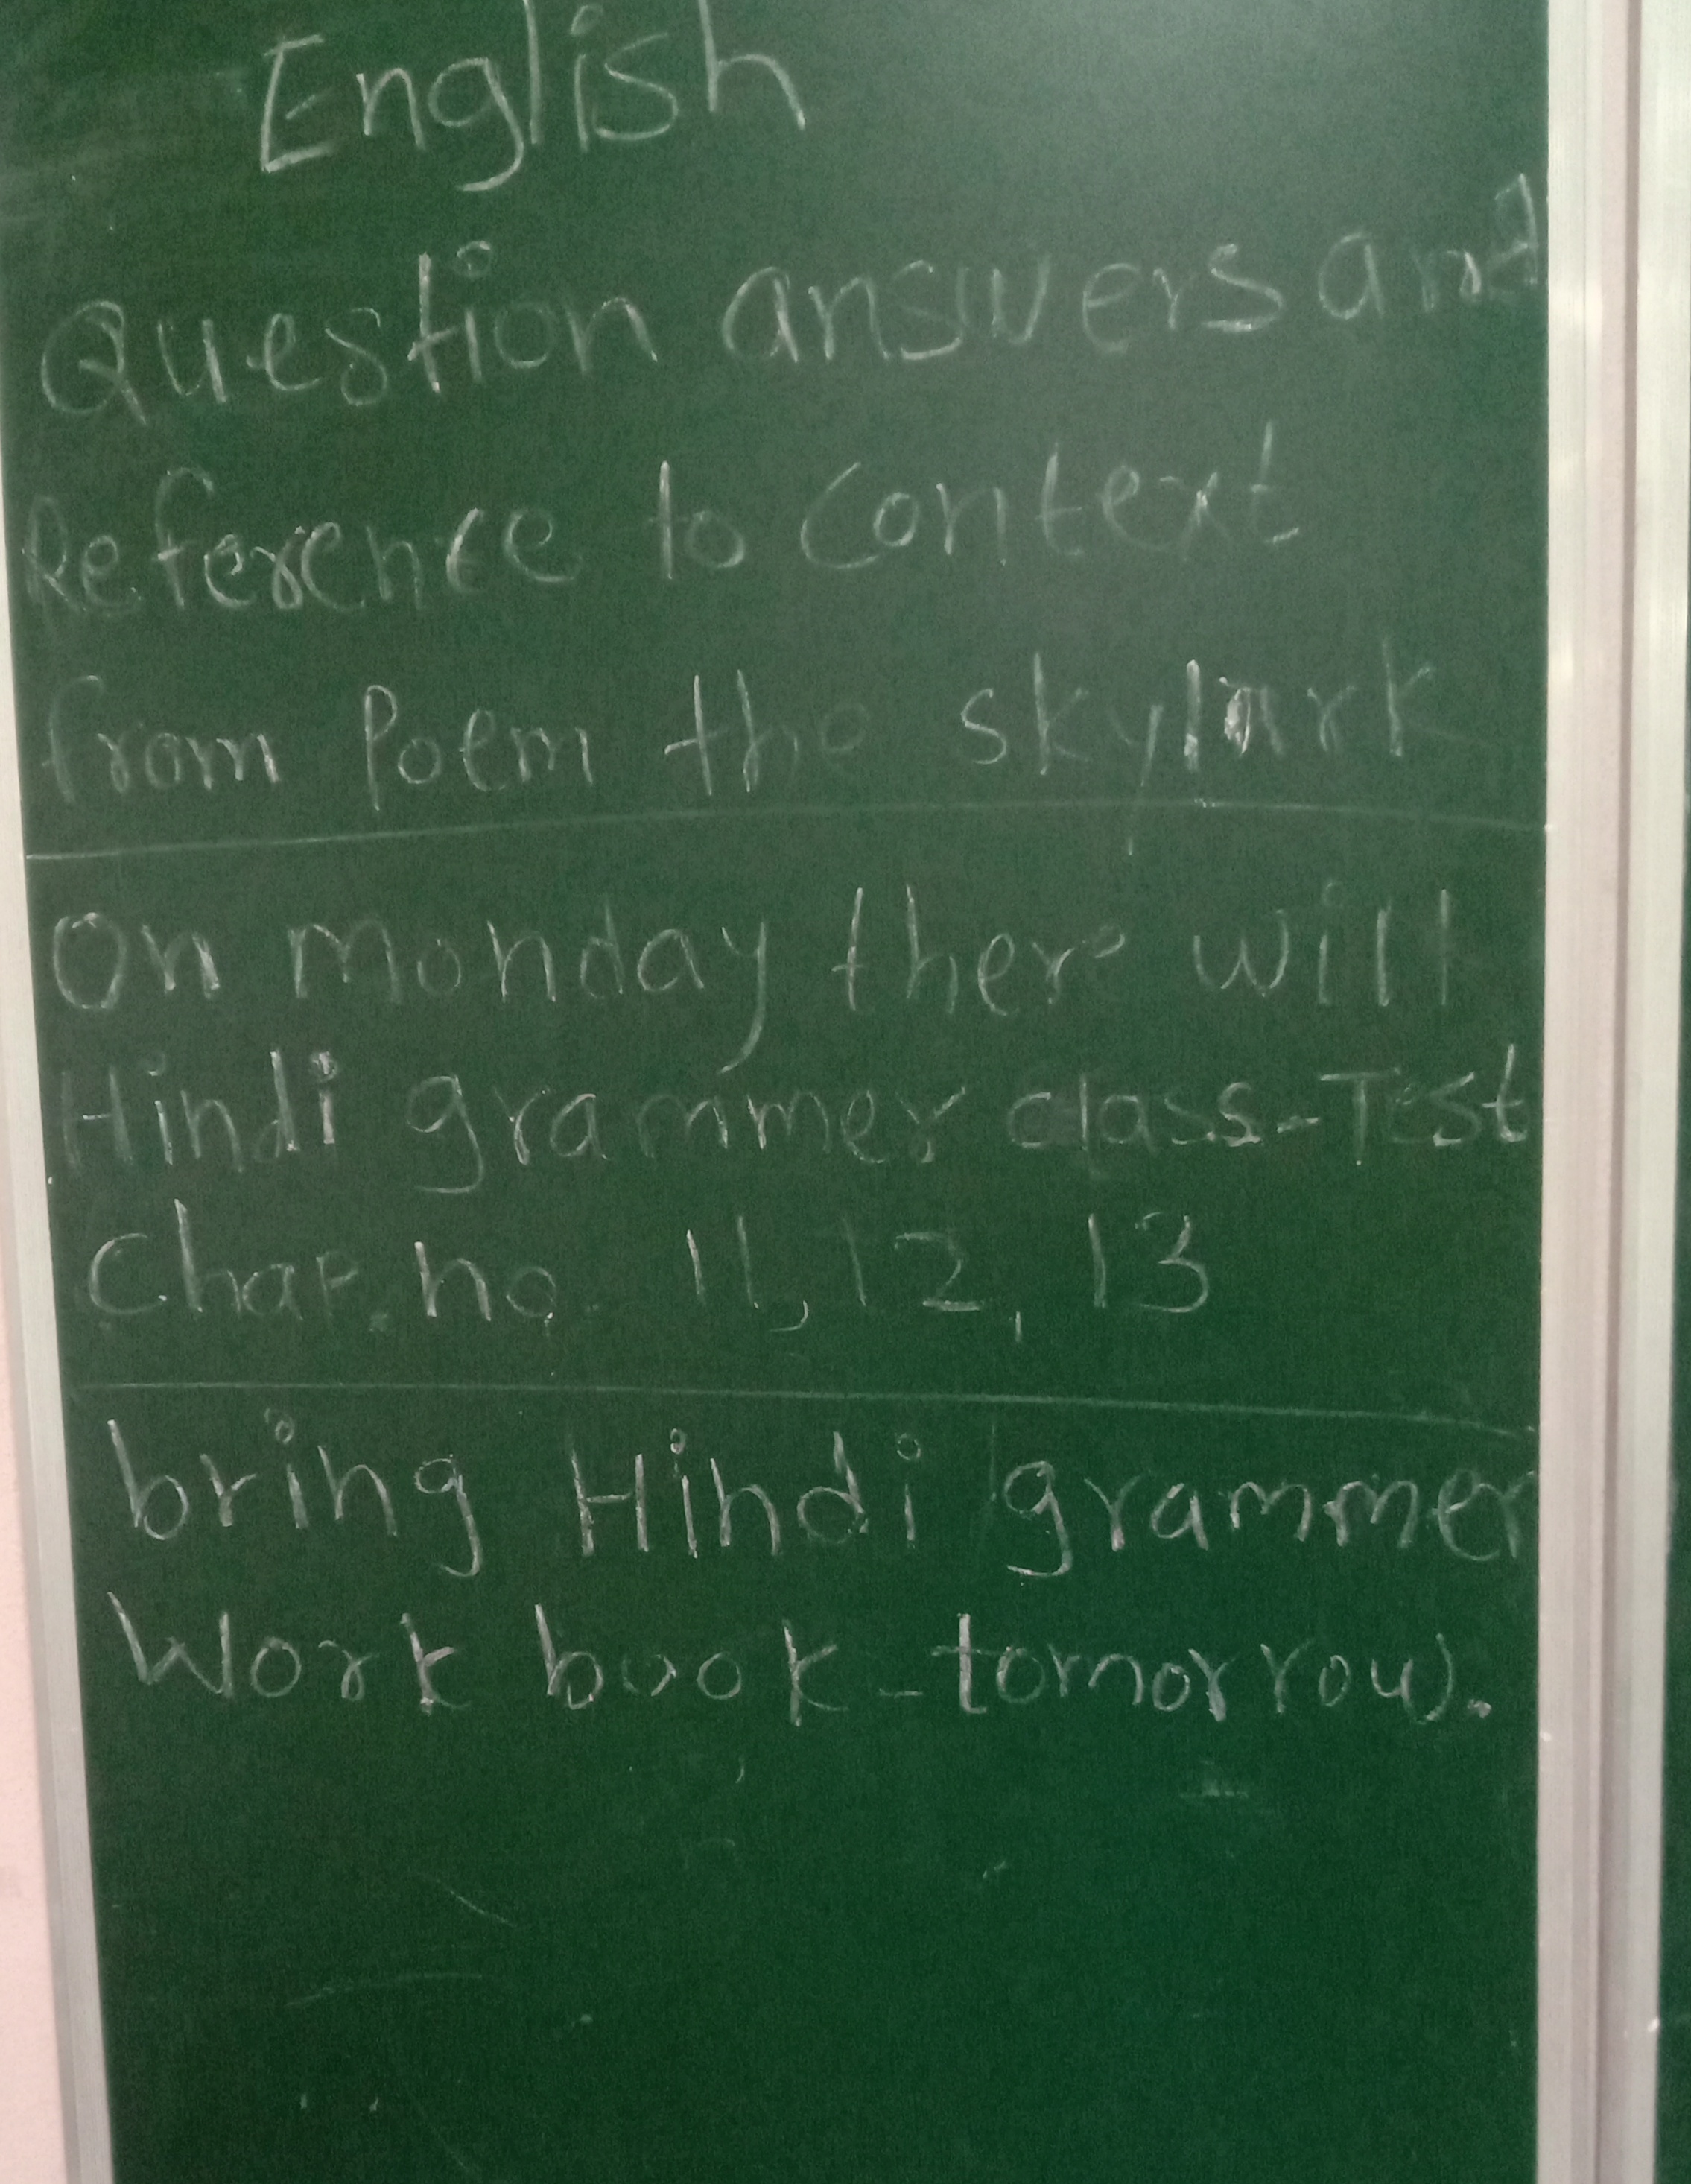 English
Question answers and
Reference to Context
from Poem the skylark
On monday there will
Hindi grammer class-Test
Chap.no. 11, 12, 13
bring Hindi grammer
Work book-tomorrow.